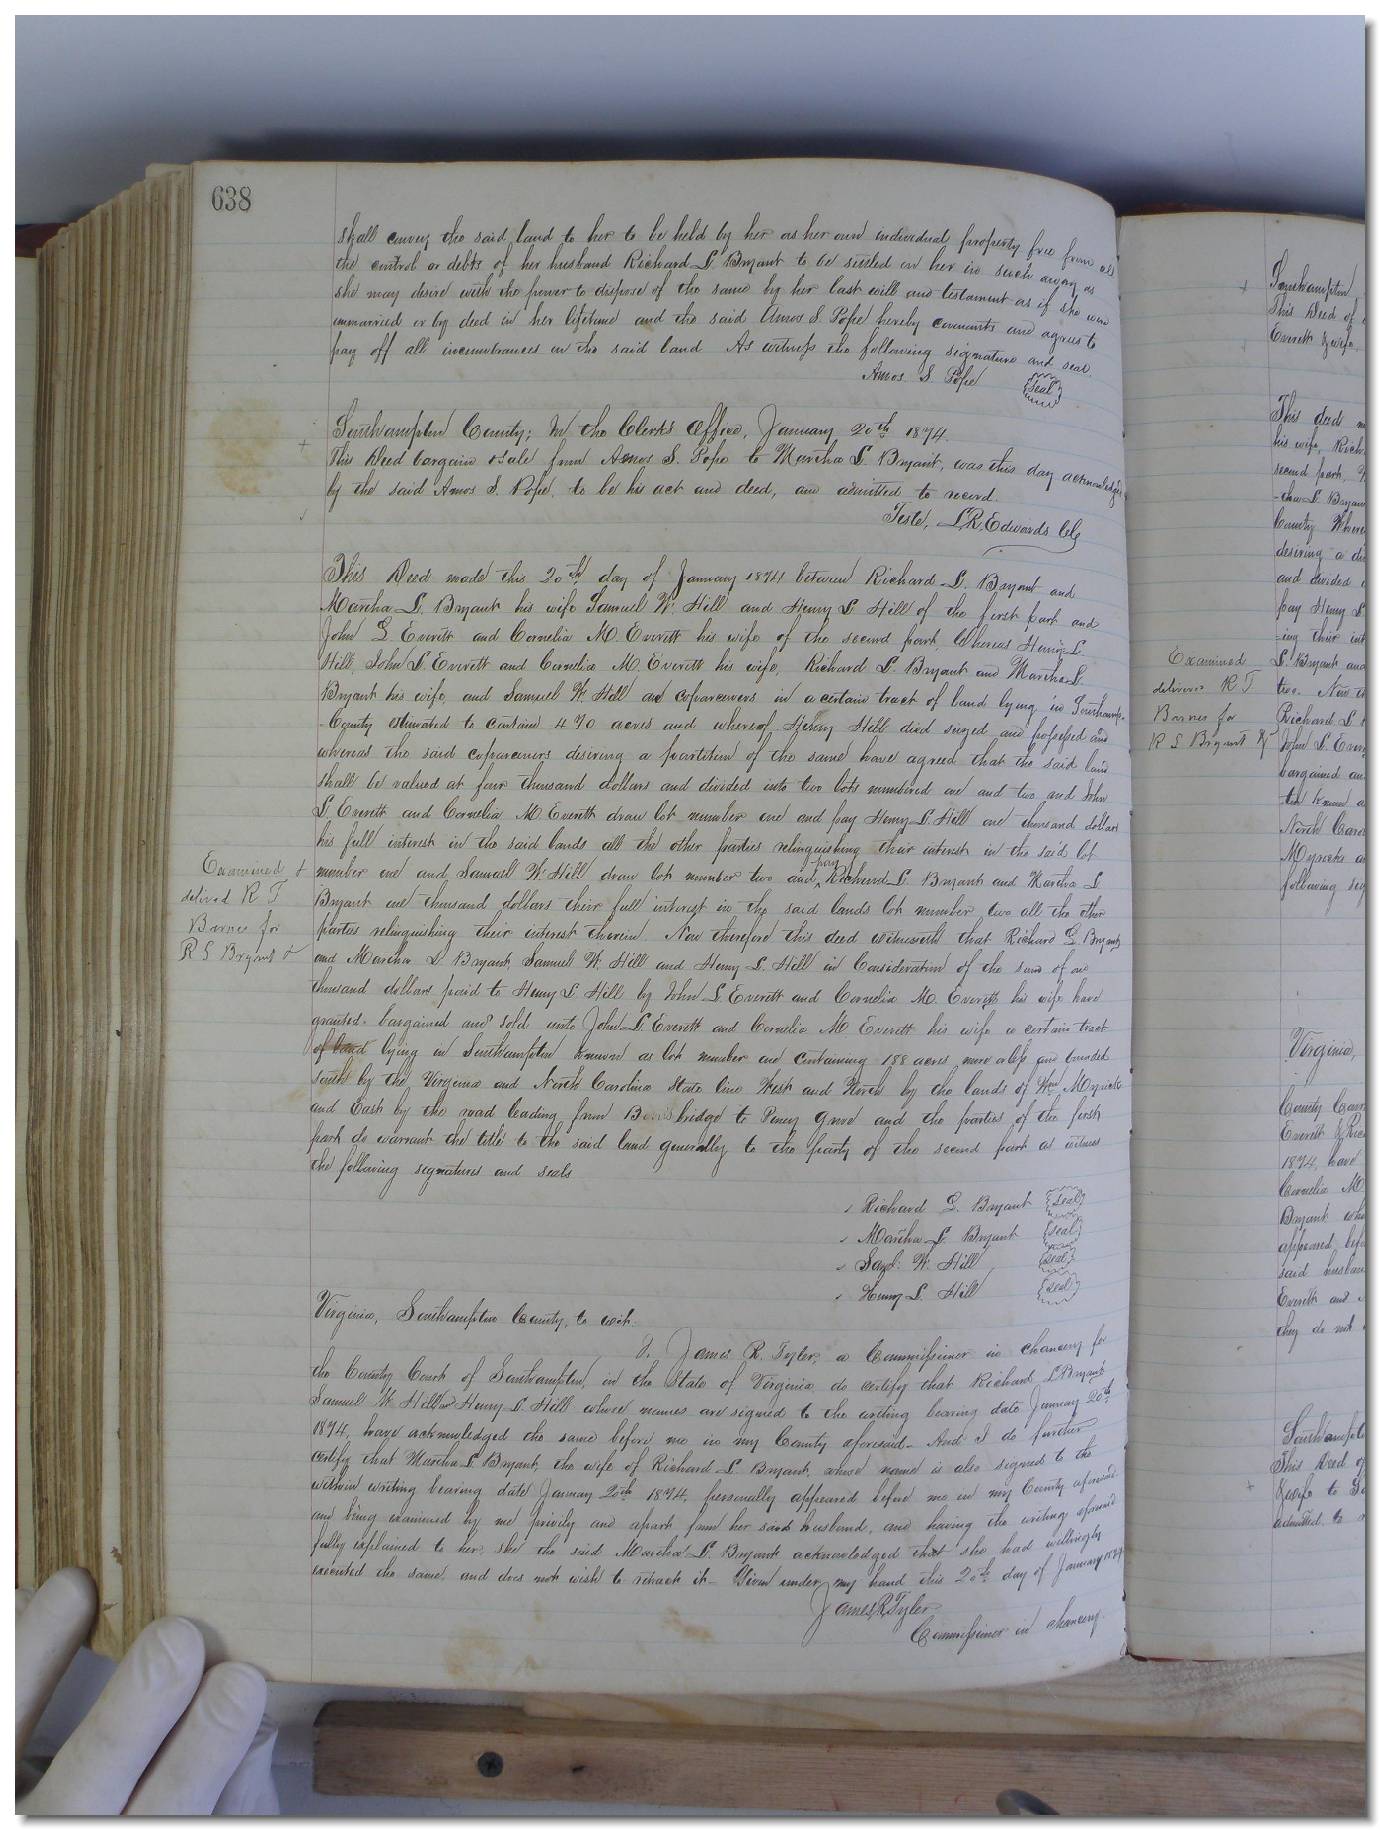 638
shall convey the said land to her to be held by her as her own individual property free from all
the control or debts of her husband Richard L. Bryant to be settled on her in such away as
she may desire with the power to dispose of the same by her last will and testament as if she were
unmarried or by deed in her lifetime and the said Amos S. Pope hereby covenants and agrees to
pay off all incumbrances on the said land As witness the following signature and seal.
Amos S Pope seal
Southampton County; In the Clerks Office, January 20th 1874.
This Deed bargain & sale from Amos S. Pope to Martha L. Bryant, was this day acknowledged
by the said Amos S. Pope, to be his act and deed, and admitted to record.
Teste, L.R. Edwards Clk
This Deed made this 20th day of January 1874 between Richard L. Bryant and
Martha L. Bryant his wife Samuel W. Hill and Henry L. Hill of the first part and
John L Everett and Cornelia M Everett his wife of the second part, Whereas Henry L.
Hill, John L Everett and Cornelia M. Everett his wife, Richard L. Bryant and Martha L.
Bryant his wife, and Samuel W. Hill are coparceners in a certain tract of land lying in Southampton
County estimated to contain 470 acres and whereof Henry Hill died seized and possessed and
whereas the said coparceners desiring a partition of the same have agreed that the said land
shall be valued at four thousand dollars and divided into two lots numbered one and two and John
L. Everett and Cornelia M Everett draw lot number one and pay Henry L. Hill one thousand dollars
his full interest in the said lands all the other parties relinquishing their interest in the said lot
number one and Samuel W. Hill draw lot number two and pay Richard L. Bryant and Martha L
Bryant one thousand dollars their full interest in the said lands lot number two all the other
parties relinquishing their interest therein. Now therefore this deed witnesseth that Richard L. Bryant
and Martha L Bryant, Samuel W. Hill and Henry L. Hill in Consideration of the sum of one
thousand dollars paid to Henry L. Hill by John L. Everett and Cornelia M. Everett his wife have
granted, bargained and sold unto John L. Everett and Cornelia M Everett his wife a certain tract
of land lying in Southampton known as lot number one containing 188 acres more or less and bounded
south by the Virginia and North Carolina State line West and North by the lands of Wm Myrick
and East by the road leading from bridge to Piney Grove and the parties of the first
part do warrant the title to the said land generally to the party of the second part as witness
the following signatures and seals
Richard L. Bryant seal
Martha L. Bryant seal
Saml. W. Hill seal
Henry L. Hill seal
Virginia, Southampton County, to wit.
I, James R. Tyler, a Commissioner in chancery for
the County Court of Southampton, in the State of Virginia, do certify that Richard L Bryant
Samuel W. Hill and Henry L. Hill whose names are signed to the writing bearing date January 20th
1874, have acknowledged the same before me in my County aforesaid. And I do further
certify that Martha L Bryant, the wife of Richard L. Bryant, whose name is also signed to the
within writing bearing date January 20th 1874, personally appeared before me in my County aforesaid
and being examined by me privily and apart from her said husband, and having the writing aforesaid
fully explained to her, she the said Martha L. Bryant acknowledged that she had willingly
executed the same and does not wish to retract it. Given under my hand this 20th day of January 1874
James R. Tyler
Commissioner in chancery.
Examined &
delived R T
Barnes for
R S Bryant &
Examined
delivers R T
Barnes for
R S Bryant &
Southampton
This Deed of
Everett & wife
This deed
his wife, Rich
second part,
L. Bryan
County Where
desiring a di
and divided
pay Henry L
ing their int
L. Bryant and
two. Now th
Richard L
John L. Ever
bargained an
North Caro
Myricks
following sig
Virginia,
County Cour
Everett & Ric
1874, have
Cornelia M
Bryant who
appeared bef
said husban
Everett and
they do not
Southampt
This Deed of
& wife to
admitted to